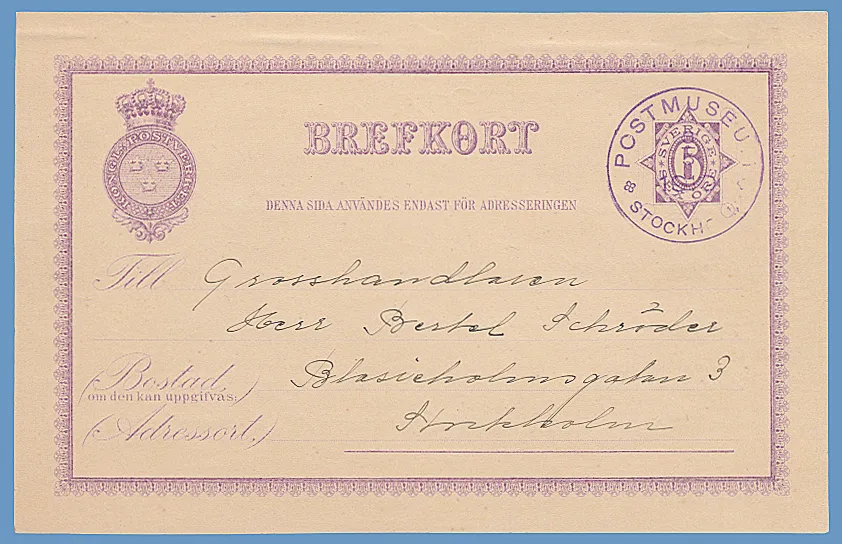 BREFKORT
KONGL. POSTVERKET
POSTMUSEUM
SVERIGE
SEX ÖRE
STOCKHOLM
DENNA SIDA ANVÄNDES ENDAST FÖR ADRESSERINGEN
Till Grosshandlaren
Herr Bertel Schröder
(Bostad) Blasieholmsgatan 3
(om den kan uppgifvas:
(Adressort.) Stockholm